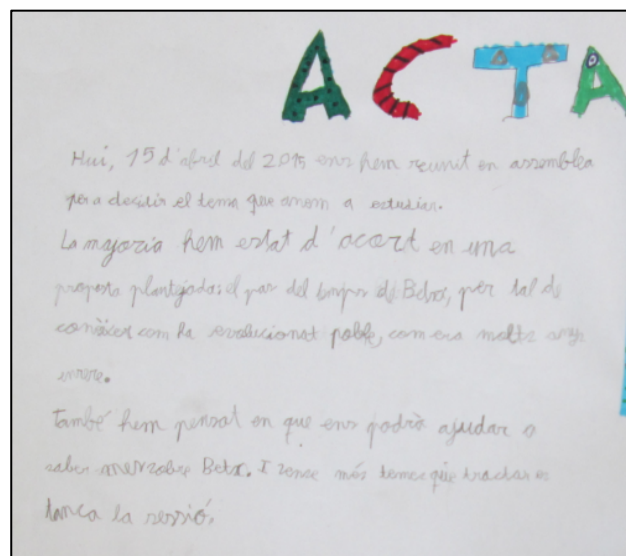 ACTA
Hui, 15 d'abril del 2015 ens hem reunit en assemblea
per a decidir el tema que anem a estudiar.
La majoria hem estat d'acort en una
proposta plantejada: el pas del temps de Betxí, per tal de
conèixer com ha evolucionat poble, com era molts anys
enrere.
També hem pensat en que ens podrà ajudar a
saber mes sobre Betxí. I sense més temes que tractar es
tanca la sessió.